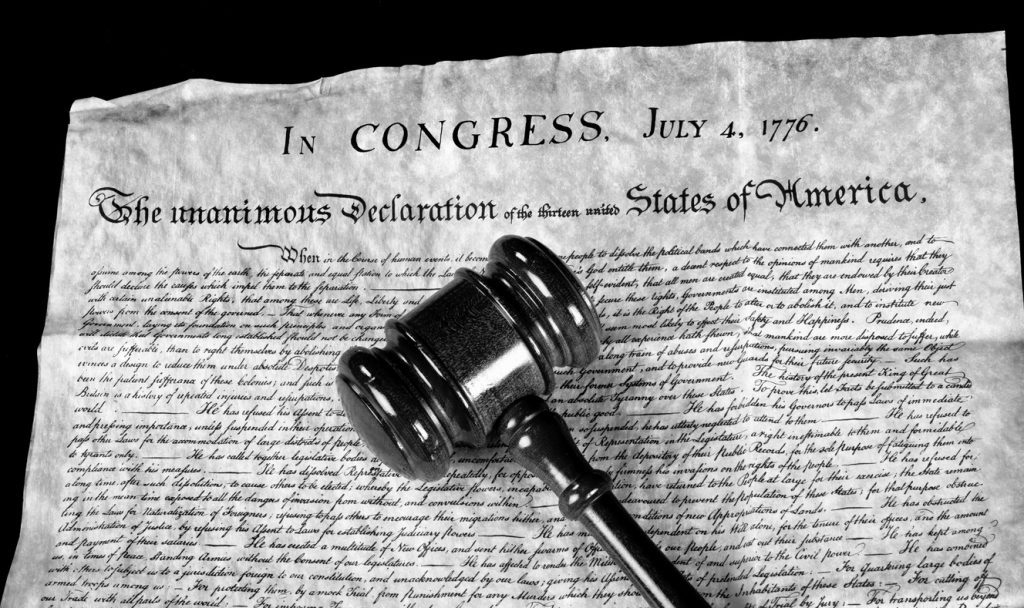 In CONGRESS, July 4, 1776.
The unanimous Declaration of the thirteen united States of America,
When in the Course of human events, it becom people to dissolve the political bands which have connected them with another, and to
assume among the powers of the earth, the separate and equal station to which the Law God entitle them, a decent respect to the opinions of mankind requires that they
should declare the causes which impel them to the separation. self-evident, that all men are created equal, that they are endowed by their Creator
with certain unalienable Rights, that among these are Life, Liberty and secure these rights, Governments are instituted among Men, deriving their just
powers from the consent of the governed. — That whenever any Form of it is the Right of the People to alter or to abolish it, and to institute new
Government, laying its foundation on such principles and organi seem most likely to effect their Safety and Happiness. Prudence, indeed,
will dictate that Governments long established should not be changed all experience hath shewn, that mankind are more disposed to suffer, while
evils are sufferable, than to right themselves by abolishing a long train of abuses and usurpations, pursuing invariably the same Object
evinces a design to reduce them under absolute Despotis such Government, and to provide new Guards for their future security. — Such has
been the patient sufferance of these Colonies; and such is their former Systems of Government. The history of the present King of Great
Britain is a history of repeated injuries and usurpations, an absolute Tyranny over these States. To prove this, let Facts be submitted to a candid
world. — He has refused his Assent to public good. — He has forbidden his Governors to pass Laws of immediate
and pressing importance, unless suspended in their operation so suspended, he has utterly neglected to attend to them. — He has refused to
pass other Laws for the accommodation of large districts of people of Representation in the Legislature, a right inestimable to them and formidable
to tyrants only. — He has called together legislative bodies a uncomfortab from the depository of their Public Records, for the sole purpose of fatiguing them into
compliance with his measures. — He has dissolved Representative repeatedly, for oppos firmness his invasions on the rights of the people. — He has refused for
a long time, after such dissolutions, to cause others to be elected; whereby the Legislative powers, incapab have returned to the People at large for their exercise; the State remain
ing in the mean time exposed to all the dangers of invasion from without, and convulsions within. endeavoured to prevent the population of these States; for that purpose obstruc
ting the Laws for Naturalization of Foreigners; refusing to pass others to encourage their migrations hither, and conditions of new Appropriations of Lands. — He has obstructed the
Administration of Justice, by refusing his Assent to Laws for establishing Judiciary powers. — He has m dependent on his Will alone, for the tenure of their offices, and the amount
and payment of their salaries. — He has erected a multitude of New Offices, and sent hither swarms of Offi our people, and eat out their substance. — He has kept among
us, in times of peace, Standing Armies without the Consent of our legislatures. — He has affected to render the Milita of and superior to the Civil power. — He has combined
with others to subject us to a jurisdiction foreign to our constitution, and unacknowledged by our laws; giving his Assen of pretended Legislation: — For Quartering large bodies of
armed troops among us: — For protecting them, by a mock Trial, from punishment for any Murders which they shou Inhabitants of these States: — For cutting off
our Trade with all parts of the world: — For imposing Trial by Jury: — For transporting us beyond